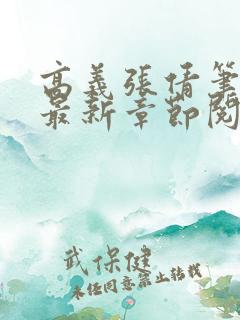 高義張倩筆
最新章節閱
武保健
未经同意禁止转载